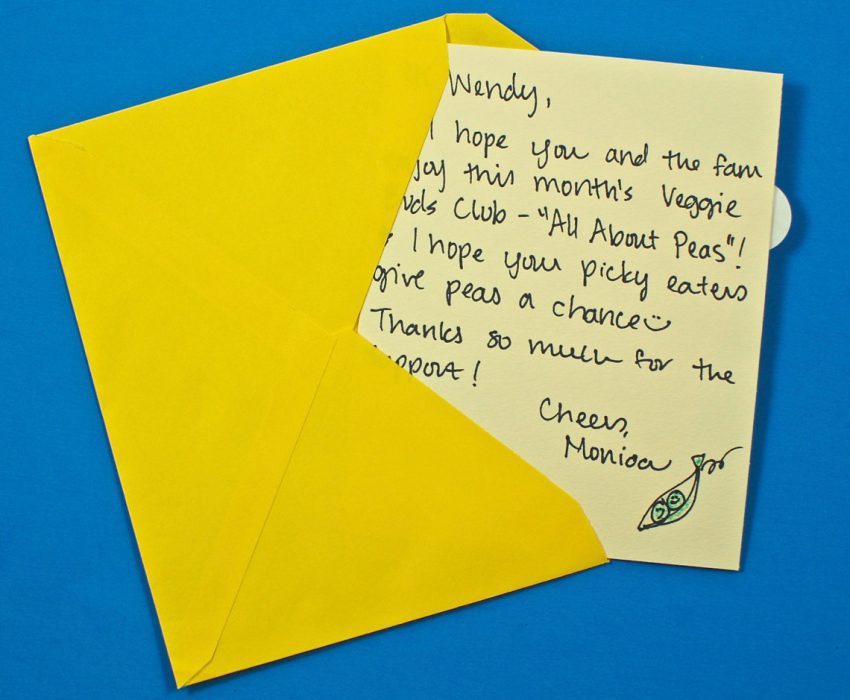 Wendy,
I hope you and the fam
joy this month's Veggie
uds Club - "All About Peas"!
I hope your picky eaters
give peas a chance
Thanks so much for the
pport!
Cheers,
Monica